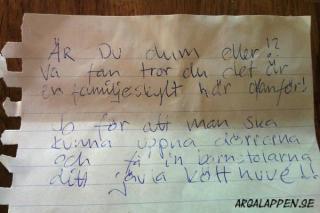 ÄR Du dum eller!?
Va fan tror du det är
en familjeskylt här utanför!
Jo för att man ska
kunna öppna dörrarna
och få in barnstolarna
ditt jävla kötthuve!!
ARGALAPPEN.SE